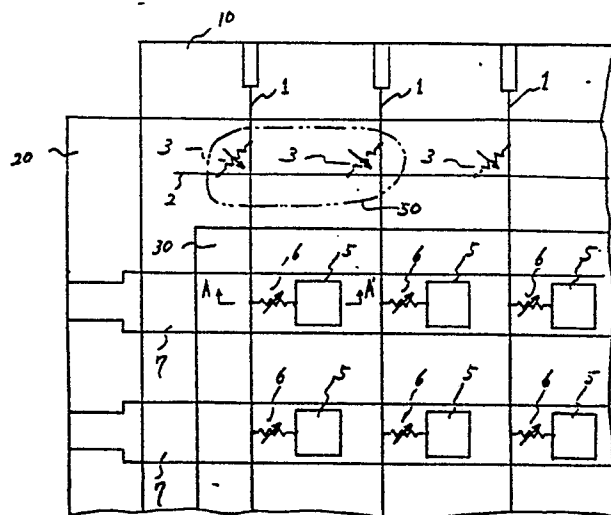 10
1 1 1
20
3 3 3
2
50
30
6 5 6 5 6 5
A A'
7
6 5 6 5 6 5
7